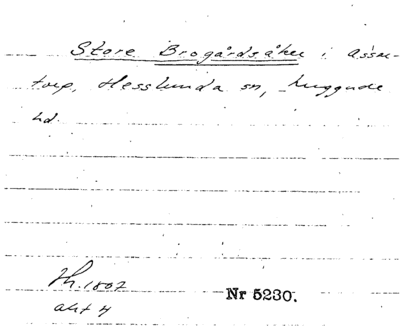 Store Brogårdsåker i Assm-
torp, Hesslunda sn, Luggude
hd.
Th. 1807
akt 4
Nr 5230.